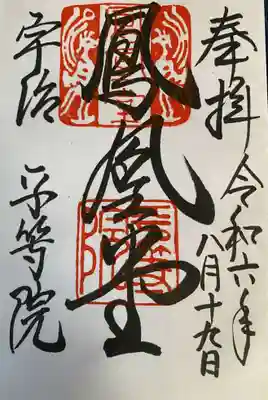 奉拝
令和六年
八月十九日
鳳凰堂
宇治
平等院